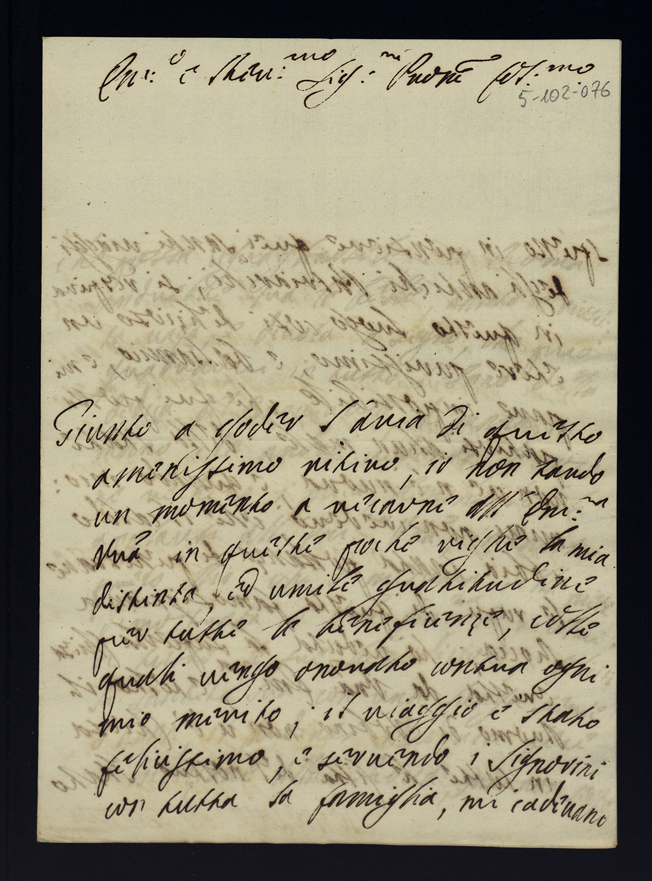 Em:o e Rev:mo Sig:re Pron̄e Col:mo
5-102-076
Giunto a goder l'aria di questo
amenissimo ritiro, io non tardo
un momento a recarne all'Em:za
Vrā in queste poche righe la mia
distinta, ed umile gratitudine
per tutte le beneficenze, colle
quali vengo onorato contra ogni
mio merito; il viaggio è stato
felicissimo, e servendo i Signorini
con tutta la famiglia, mi cadevano